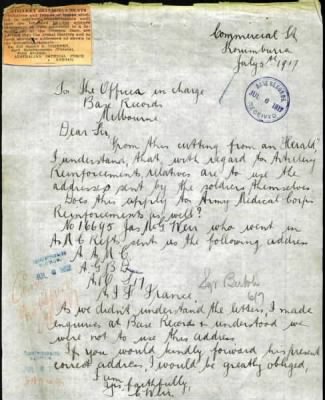 Commercial St
Korumburra
July 5th 1917
BASE RECORDS
JUL 6 1917
RECEIVED
To The Officer in charge
Base Records
Melbourne
Dear Sir,
From this cutting from an "Herald"
I understand, that with regard to Artillery
Reinforcements relatives are to use the
addresses sent by the soldiers themselves.
Does this apply to Army Medical Corps
Reinforcements as well?
No 16695 Jas McG Weir who went in
A.M.C Refts sent us the following address
A.A.M.C.
A.G.B.D.
A.I.F. France.
As we didn't understand the letters, I made
enquiries at Base Records & understood we
were not to use this address.
If you would kindly forward his present
correct address, I would be greatly obliged,
I am
yrs faithfully,
Weir
6/7
AUSTRALIAN IMPERIAL FORCE
LONDON